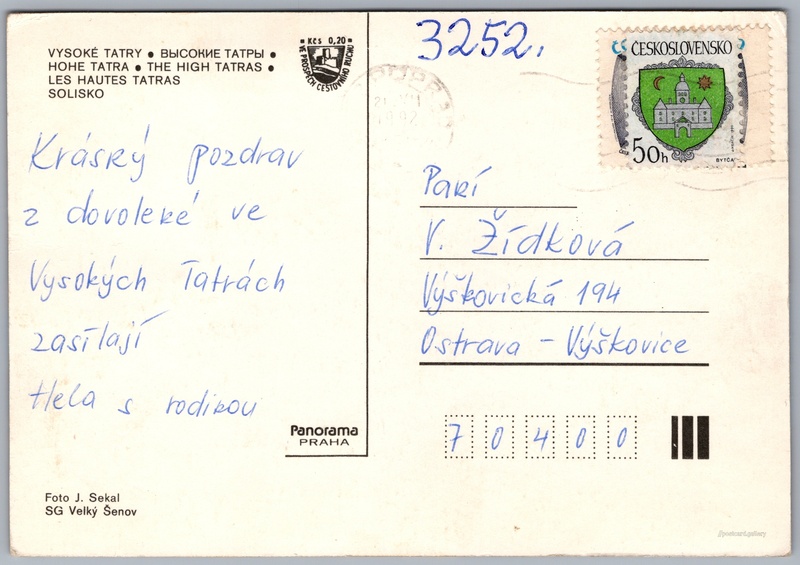 VYSOKÉ TATRY • ВЫСОКИЕ ТАТРЫ •
HOHE TATRA • THE HIGH TATRAS •
LES HAUTES TATRAS
SOLISKO
Kčs 0,20
VE PROSPĚCH CESTOVNÍHO RUCHU
3252.
ČESKOSLOVENSKO
50h
BYTČA
Krásný pozdrav
z dovolené ve
Vysokých Tatrách
zasílají
Hela s rodinou
Paní
V. Žídková
Výškovická 194
Ostrava - Výškovice
70400
Panorama
PRAHA
Foto J. Sekal
SG Velký Šenov